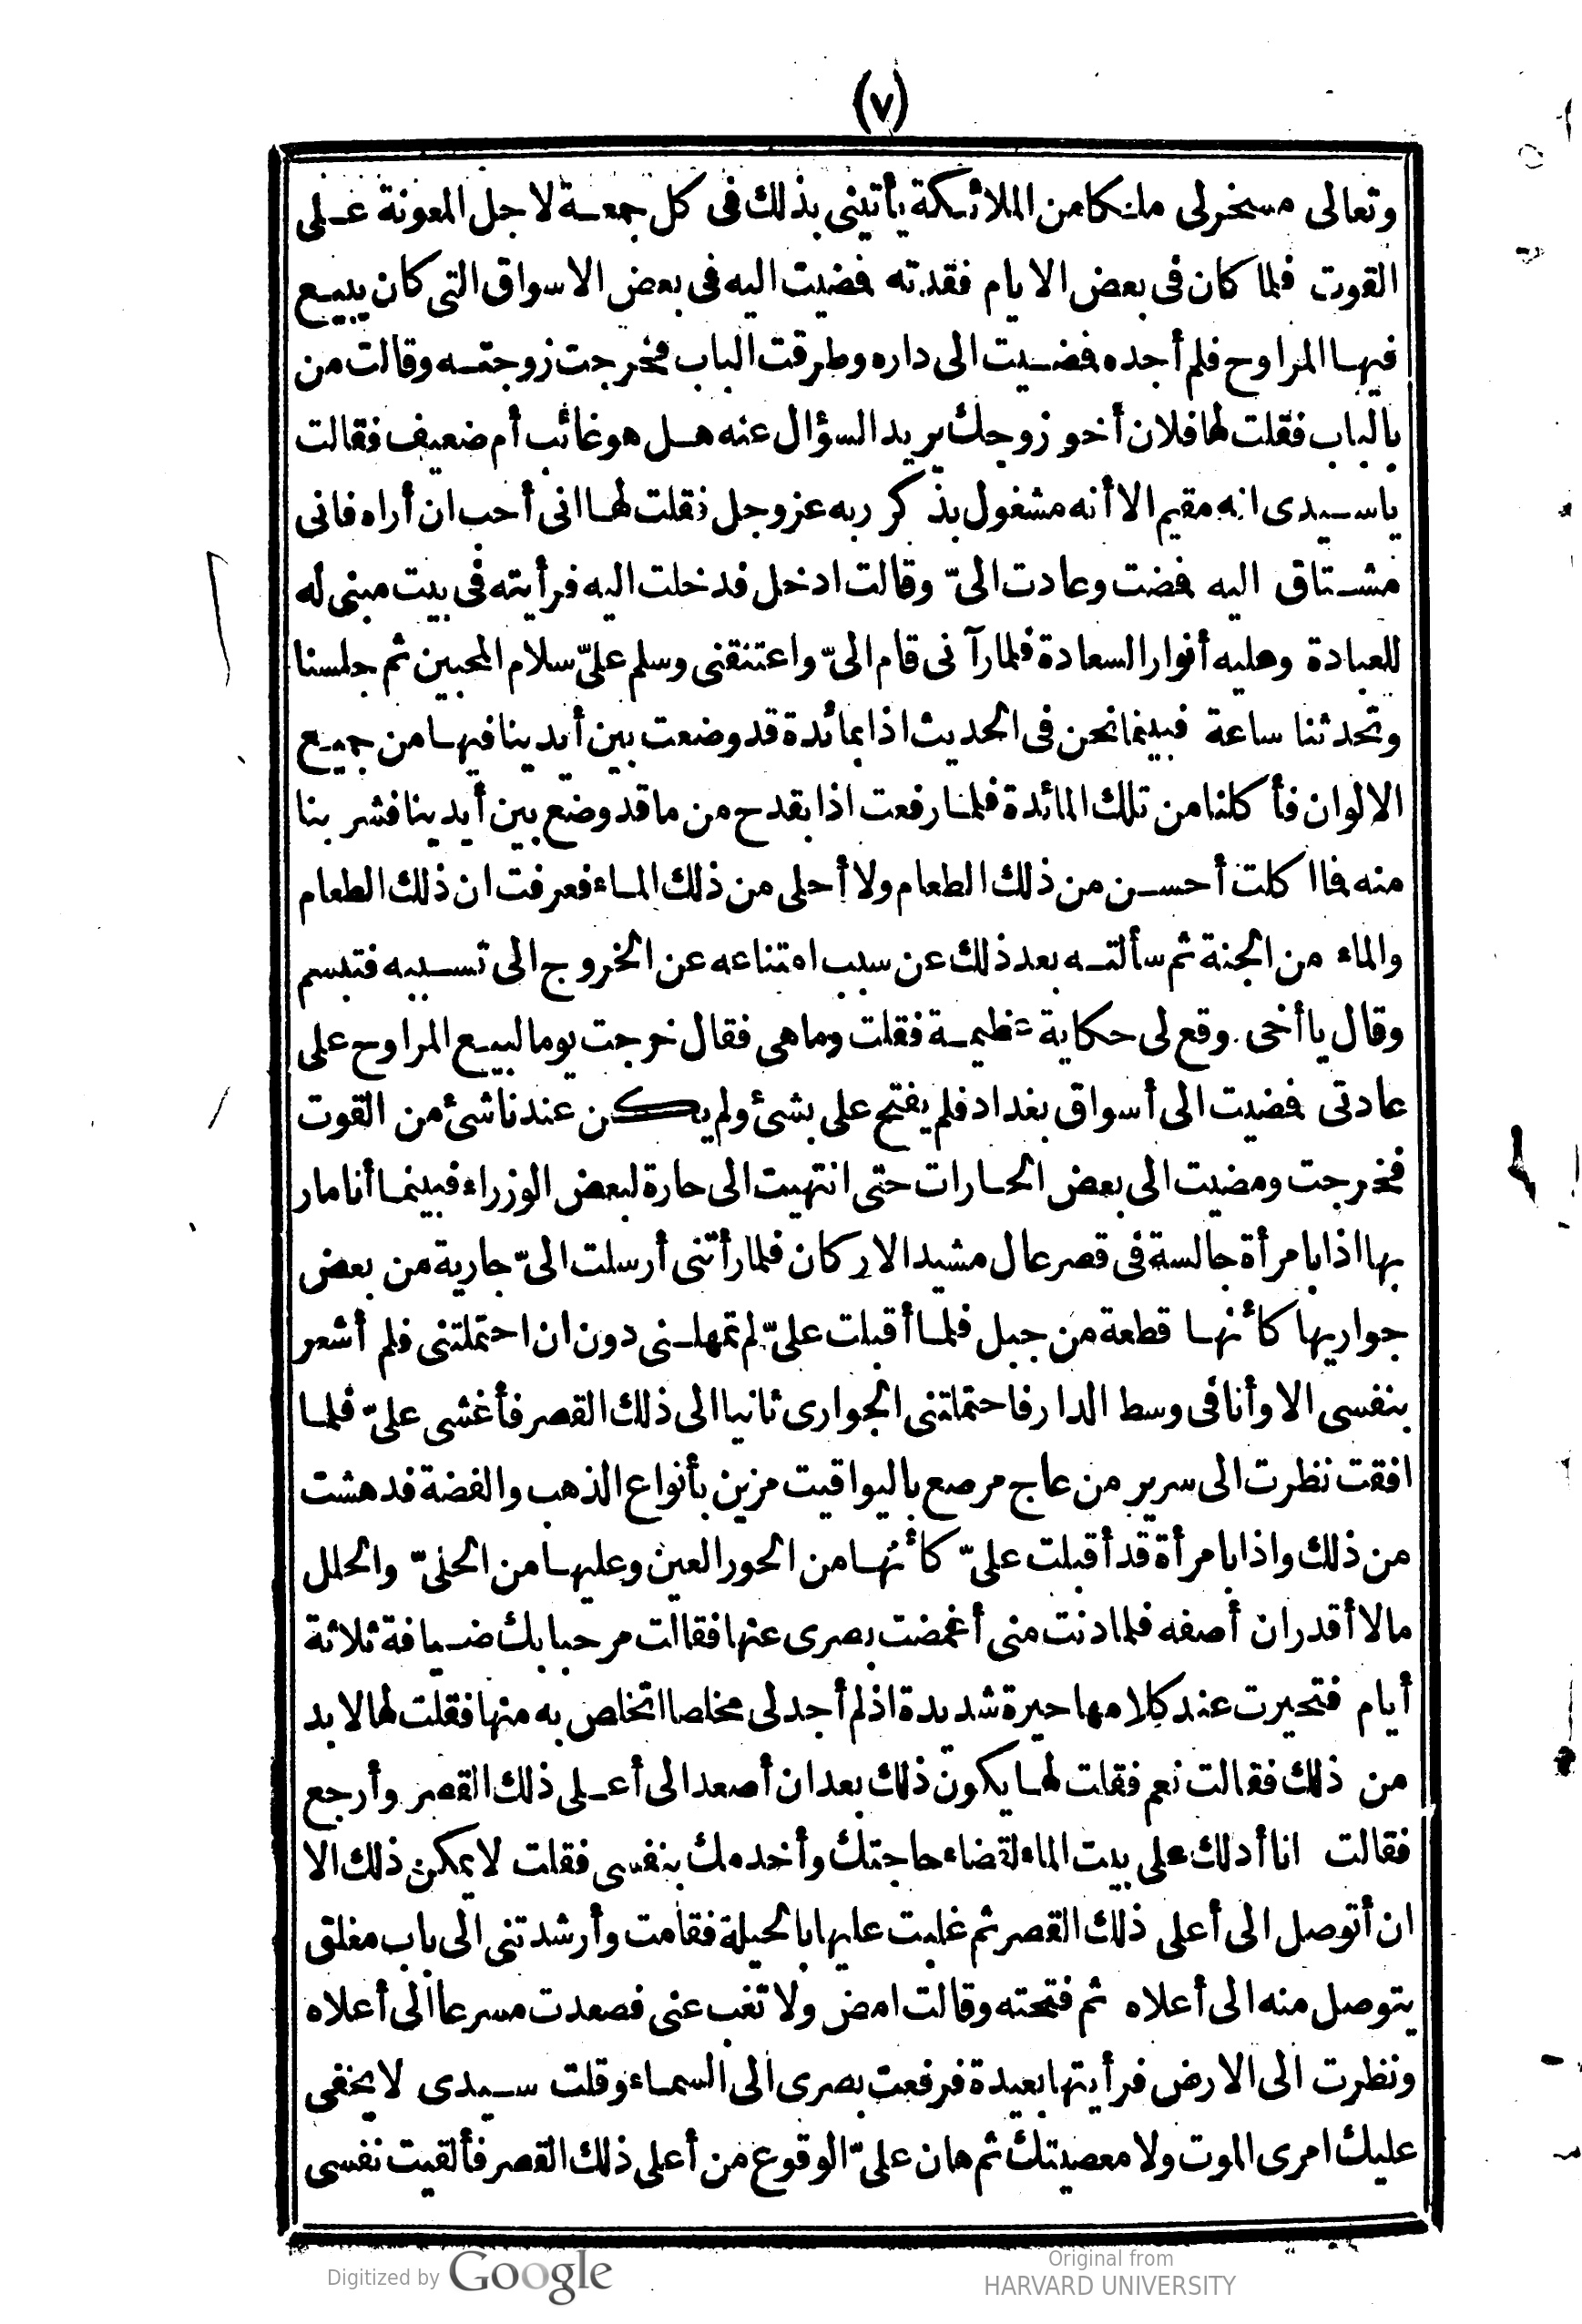 (٧)
وتعالى مسخر لى ملكا من الملائكة يأتينى بذلك فى كل جمعة لاجل المعونة على
القوت فلما كان فى بعض الايام فقدته فضيت اليه فى بعض الاسواق التى كان يبيع
فيها المراوح فلم أجده فضيت الى داره وطرقت الباب فخرجت زوجته وقالت من
بالباب فقلت لها فلان أخو زوجك يريد السؤال عنه هل هو غائب أم ضعيف فقالت
ياسيدى انه مقيم الا أنه مشغول بذكر ربه عز وجل فقلت لها انى أحب ان أراه فانى
مشتاق اليه فضت وعادت الىّ وقالت ادخل فدخلت اليه فرأيته فى بيت مبنى له
للعبادة وعليه أنوار السعادة فلما رآنى قام الىّ واعتنقنى وسلم علىّ سلام المحبين ثم جلسنا
وتحدثنا ساعة فبينما نحن فى الحديث اذا بمائدة قد وضعت بين أيدينا فيها من جميع
الالوان فأكلنا من تلك المائدة فلما رفعت اذا بقدح من ماء قد وضع بين أيدينا فشربنا
منه فما اكلت أحسن من ذلك الطعام ولا أحلى من ذلك الماء فعرفت ان ذلك الطعام
والماء من الجنة ثم سألته بعد ذلك عن سبب امتناعه عن الخروج الى تسببه فتبسم
وقال يا أخى وقع لى حكاية عظيمة فقلت وما هى فقال خرجت يوما لبيع المراوح على
عادتى فضيت الى أسواق بغداد فلم يفتح على بشئ ولم يكن عندنا شئ من القوت
فخرجت ومضيت الى بعض الحارات حتى انتهيت الى حارة لبعض الوزراء فبينما أنا مار
بها اذا بامرأة جالسة فى قصر عال مشيد الاركان فلما رأتنى أرسلت الىّ جارية من بعض
جواريها كأنها قطعة من جبل فلما أقبلت علىّ لم تمهلنى دون ان احتملتنى فلم أشعر
بنفسى الا وأنا فى وسط الدار فاحتملتنى الجوارى ثانيا الى ذلك القصر فأغشى علىّ فلما
افقت نظرت الى سرير من عاج مرصع باليواقيت مزين بأنواع الذهب والفضة فدهشت
من ذلك واذا بامرأة قد أقبلت علىّ كأنها من الحور العين وعليها من الحلىّ والحلل
مالا أقدر ان أصفه فلما دنت منى أغمضت بصرى عنها فقالت مرحبا بك ضيافة ثلاثة
أيام فتحيرت عند كلامها حيرة شديدة اذ لم أجد لى مخلصا اتخلص به منها فقلت لها لابد
من ذلك فقالت نعم فقلت لها يكون ذلك بعد ان أصعد الى أعلى ذلك القصر وأرجع
فقالت انا أدلك على بيت الماء لقضاء حاجتك وأخدمك بنفسى فقلت لا يمكن ذلك الا
ان أتوصل الى أعلى ذلك القصر ثم غلبت عليها بالحيلة فقامت وأرشدتنى الى باب مغلق
يتوصل منه الى أعلاه ثم فتحته وقالت امض ولا تغب عنى فصعدت مسرعا الى أعلاه
ونظرت الى الارض فرأيتها بعيدة فرفعت بصرى الى السماء وقلت سيدى لا يخفى
عليك امرى الموت ولا معصيتك ثم هان علىّ الوقوع من أعلى ذلك القصر فألقيت نفسى
Digitized by Google
Original from
HARVARD UNIVERSITY